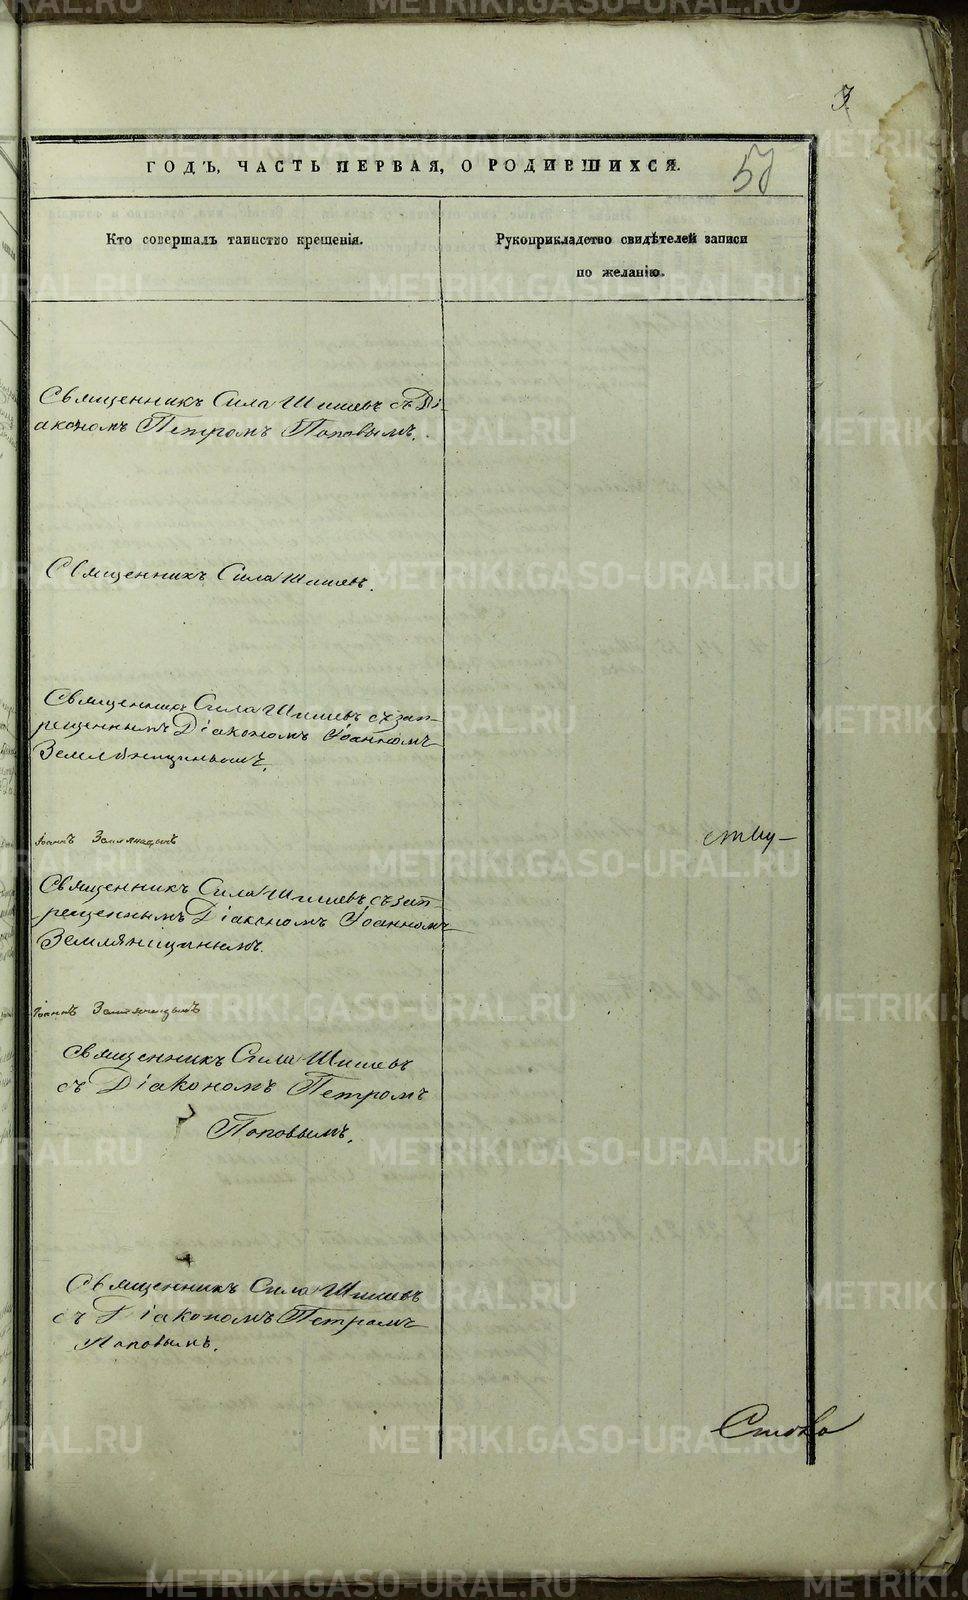 3
ГОДЪ, ЧАСТЬ ПЕРВАЯ, О РОДИВШИХСЯ.
Кто совершалъ таинство крещенія.
Рукоприкладство свидѣтелей записи
по желанію.
Священникъ Сила Шишевъ съ Ді-
акономъ Петромъ Поповымъ.
Священникъ Сила Шишевъ.
Священника Сила Шишевъ съ зап-
рещеннымъ Діакономъ Іоанномъ
Земляницинымъ.
Іоаннъ Земляницынъ
ству-
Священникъ Сила Шишевъ съ зап-
рещеннымъ Діакономъ Іоанномъ
Земляницинымъ.
Іоаннъ Земляницынъ
Священникъ Сила Шишевъ
съ Діакономъ Петромъ
Поповымъ.
Священникъ Сила Шишевъ
съ Діакономъ Петромъ
Поповымъ.
METRIKI.GASO-URAL.RU